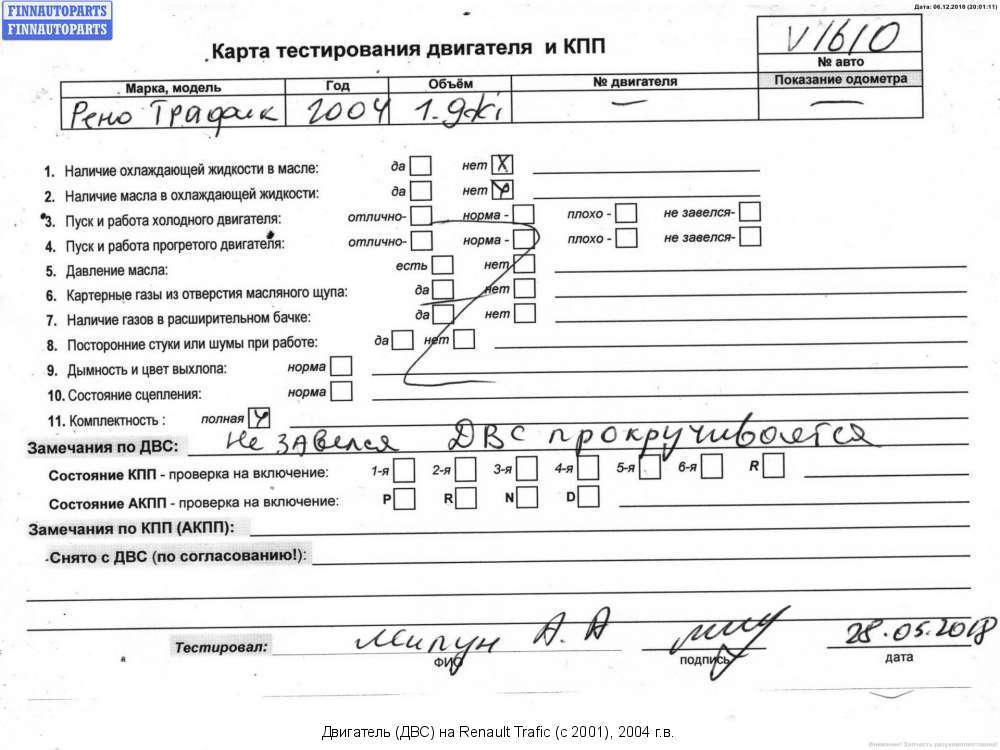 FINNAUTOPARTS
FINNAUTOPARTS
Дата: 06.12.2018 (20:01:11)
Карта тестирования двигателя и КПП
V1610
№ авто
Марка, модель Год Объём № двигателя Показание одометра
Рено Трафик 2004 1.9dci — —
1. Наличие охлаждающей жидкости в масле: да нет X
2. Наличие масла в охлаждающей жидкости: да нет
3. Пуск и работа холодного двигателя: отлично- норма - плохо - не завелся-
4. Пуск и работа прогретого двигателя: отлично- норма - плохо - не завелся-
5. Давление масла: есть нет
6. Картерные газы из отверстия масляного щупа: да нет
7. Наличие газов в расширительном бачке: да нет
8. Посторонние стуки или шумы при работе: да нет
9. Дымность и цвет выхлопа: норма
10. Состояние сцепления: норма
11. Комплектность : полная
Замечания по ДВС: Не завелся ДВС прокручивается
Состояние КПП - проверка на включение: 1-я 2-я 3-я 4-я 5-я 6-я R
Состояние АКПП - проверка на включение: P R N D
Замечания по КПП (АКПП):
Снято с ДВС (по согласованию!):
Тестировал: А. А 28.05.2018
ФИО подпись дата
Двигатель (ДВС) на Renault Trafic (с 2001), 2004 г.в.
Внимание! Запчасть разукомплектована!